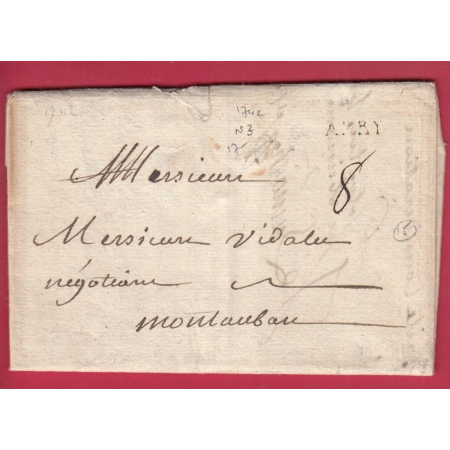 1742
1742
N3
17
ALBY
8
Monsieur
Monsieur Vidalle
négotiant
15
montauban